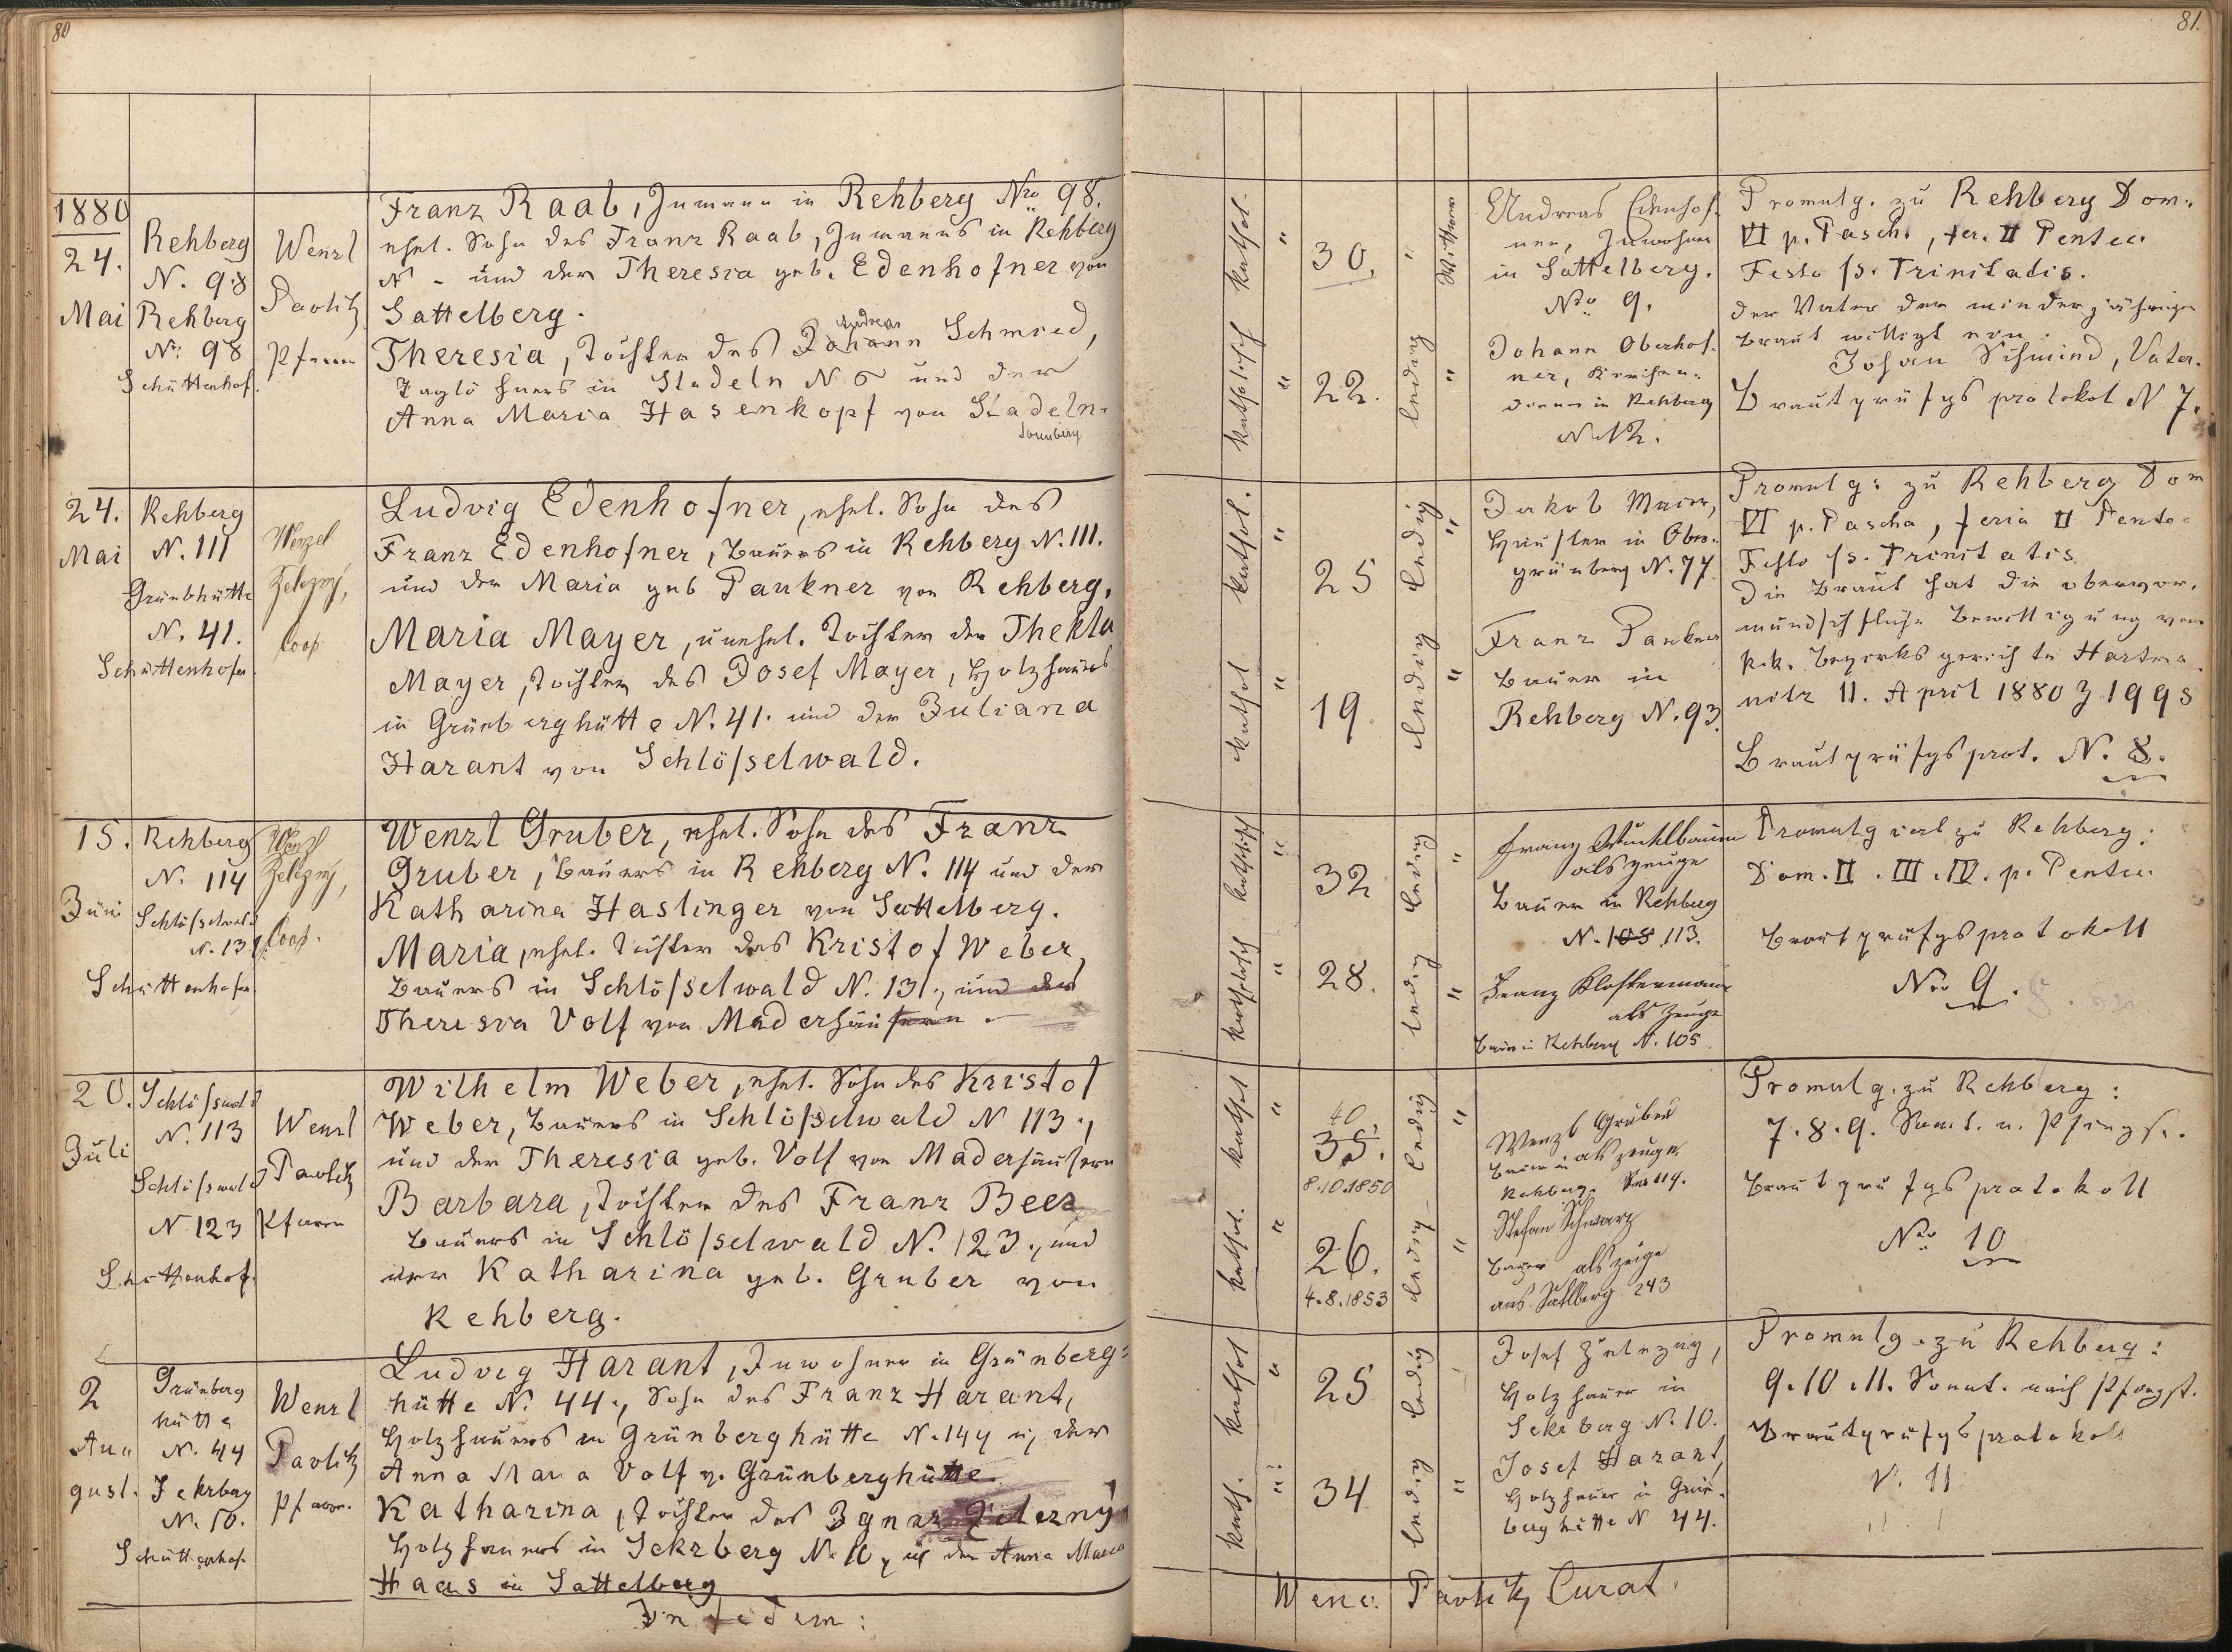 80
1880
24.
Mai
Rehberg
N. 98
Rehberg
No: 98
Schüttenhof.
Wenzl
Pavlik
Pfarrer
Franz Raab, Inmann in Rehberg Nro 98.
ehel. Sohn des Franz Raab, Inmanns in Rehberg
N - und der Theresia geb. Edenhofner von
Sattelberg.
Andreas
Theresia, Tochter des Johann Schmied,
Taglöhners in Stadeln N 6 und der
Anna Maria Hasenkopf von Stadeln.
24.
Mai
Rehberg
N. 111
Grünbhütte
N. 41.
Schüttenhofen.
Wenzel
Železný,
Coop.
Ludvig Edenhofner, ehel. Sohn des
Franz Edenhofner, Bauers in Rehberg N. 111.
und der Maria geb Paukner von Rehberg.
Maria Mayer, unehel. Tochter der Thekla
Mayer, Tochter des Josef Mayer, Holzhauers
in Grünberghütte N. 41. und der Juliana
Harant von Schlösselwald.
15.
Juni
Rehberg
N. 114
Schlösselwald
N. 131.
Schüttenhofen
Wenzl
Železný,
Coop.
Wenzl Gruber, ehel. Sohn des Franz
Gruber, Bauers in Rehberg N. 114 und der
Katharina Haslinger von Sattelberg.
Maria, ehel. Tochter des Kristof Weber,
Bauers in Schlösselwald N. 131., und der
Theresia Volf von Maderhäusern.
20.
Juli
Schlösswald
N. 113
Schlösswald
N 123
Schüttenhof.
Wenzl
Pavlik
Pfarrer
Wilhelm Weber, ehel. Sohn des Kristof
Weber, Bauers in Schlösselwald N 113.,
und der Theresia geb. Volf von Maderhäusern
Barbara, Tochter des Franz Beer
Bauers in Schlösselwald N. 123., und
der Katharina geb. Gruber von
Rehberg.
2
Au
gust.
Grünberg
hütte
N. 44
Sekrberg
N. 10.
Schüttenhof.
Wenzl
Pavlik
Pfarrer.
Ludvig Harant, Inwohner in Grünberg=
hütte N. 44., Sohn des Franz Harant,
Holzhauers in Grünberghütte N. 144 u, der
Anna Maria Volf v. Grünberghütte
Katharina, Tochter des Ignaz Železný
Holzhauers in Sekrberg N. 10, u der Anna Maria
Haas in Sattelberg
In fidem:
81.
kathol.
"
30.
"
katholisch
"
22.
ledig
"
Andreas Edenhof-
ner, Inwohner
in Sattelberg.
Nro 9.
Johann Oberhof-
ner, Kirchen-
diener in Rehberg
N. 12.
Promulg. zu Rehberg Dom.
VI p. Pasch., fer. II Pentec.
Festo ss. Trinitadis.
Der Vater der minderjährigen
Braut willigt ein.
Johan Schmind, Vater.
Brautprüfgsprotokol N 7.
kathol.
"
25
ledig
"
kathol
"
19.
ledig
"
Jakob Maier,
Häusler in Ober-
grünberg N. 77.
Franz Paukner
Bauer in
Rehberg N. 93.
Promulg: zu Rehberg Dom
VI p. Pascha, feria II Pente-
Festo ss. Trinitatis.
Die Braut hat die obervor-
mundschftliche Bewilligung vom
k.k. Bezirksgerichte Hartma-
nitz 11. April 1880 Z 1998
Brautprüfgsprot. N. 8.
katholisch
"
32
ledig
"
katholisch
"
28.
ledig
"
als Zeuge
Bauer in Rehberg
N. 105 113.
Franz Klostermann
als Zeuge
Bauer in Rehberg N. 105.
Promulgiert zu Rehberg:
Dom. II. III. IV. p. Pentec.
Brautprüfgsprotokoll
Nro 9.
kathol
"
40.
35.
8.10.1850
ledig
"
kathol.
"
26.
4.8.1853
ledig
"
Wenzl Gruber
Bauer in als Zeuge
Rehberg. Nro 114.
Stefan Schwarz
Bauer als Zeuge
aus Sattlberg 243
Promulg. zu Rehberg:
7. 8. 9. Sont. n. Pfingst.
Brautprüfgsprotokoll
Nro 10
kathol
"
25
ledig
kath.
"
34
ledig
"
Josef Železny,
Holzhauer in
Sekrberg N. 10.
Josef Harant,
Holzhauer in Grün-
berghütte N 44.
Promulg. zu Rehberg:
9. 10. 11. Sonnt. nach Pfingst.
Brautprüfgsprotokoll
N. 11
Wenc. Pavlik Curat.